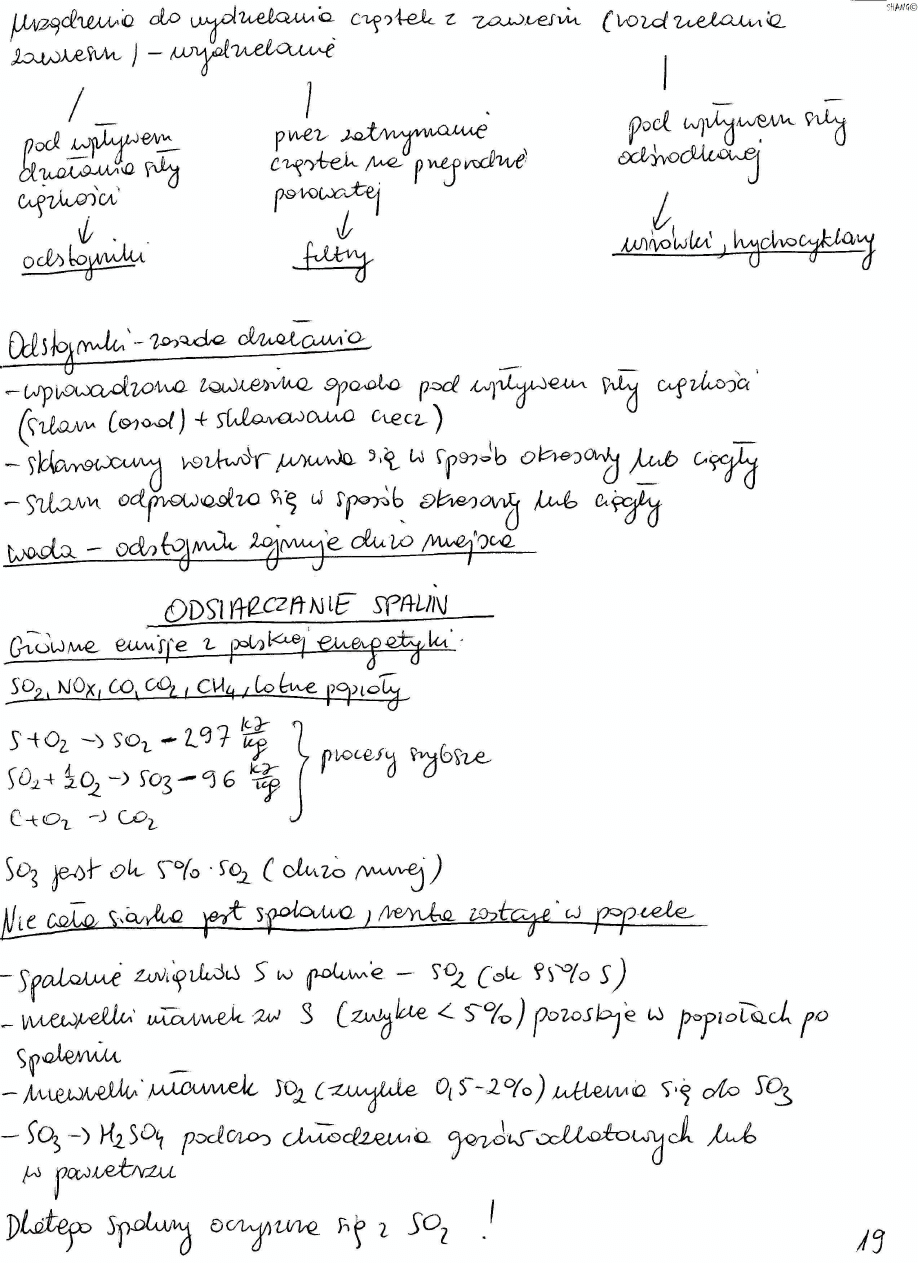 SHANG©
urządzenia do wydzielania cząstek z zawiesin (rozdzielania
zawiesin) – wydzielanie
pod wpływem
działania siły
ciężkości
odstojniki
przez zatrzymanie
cząstek na przegrodzie
porowatej
filtry
pod wpływem siły
odśrodkowej
wirówki, hydrocyklony
Odstojniki - zasada działania
- wprowadzona zawiesina opada pod wpływem siły ciężkości
(szlam (osad) + sklarowana ciecz)
- sklarowany roztwór usuwa się w sposób okresowy lub ciągły
- szlam odprowadza się w sposób okresowy lub ciągły
wada – odstojnik zajmuje dużo miejsca
ODSIARCZANIE SPALIN
Główne emisje z polskiej energetyki:
SO2, NOX, CO, CO2, CH4, lotne popioły
S+O2 -> SO2 – 297 kJ/kg
SO2 + 1/2 O2 -> SO3 – 96 kJ/kg
C+O2 -> CO2
} procesy szybsze
SO3 jest ok 5% · SO2 (dużo mniej)
Nie cała siarka jest spalana, reszta zostaje w popiele
- Spalanie związków S w paliwie – SO2 (ok 95% S)
- niewielki ułamek zw S (zwykle < 5%) pozostaje w popiołach po
spaleniu
- niewielki ułamek SO2 (zwykle 0,5-2%) utlenia się do SO3
- SO3 -> H2SO4 podczas chłodzenia gazów odlotowych lub
w powietrzu
Dlatego spaliny oczyszcza się z SO2 !
19